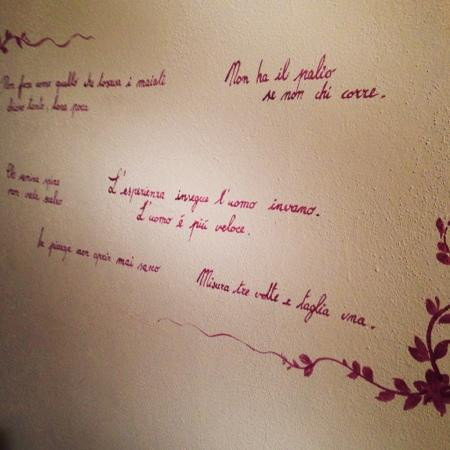 Non fare come quello che tosava i maiali
chiasso tanto, lana poca
Non ha il palio
se non chi corre.
Chi semina spine
non vada scalzo
L'esperienza insegue l'uomo invano.
L'uomo è più veloce.
In piazza non aprir mai sacco
Misura tre volte e taglia una.